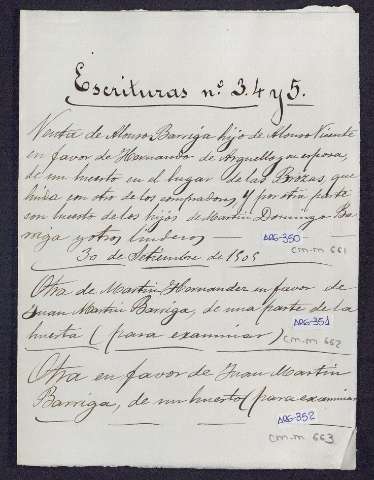 Escrituras nº 3.4 y 5.
Venta de Alonso Barriga hijo de Alonso Vicente
en favor de Hernando de Arguello y su esposa,
de un huerto en el lugar de las Brozas, que
linda con otro de los compradores y por otra parte
con huerto de los hijos de Martin Domingo Ba-
rriga y otros linderos
ARG-350
cm.m 661
30 de Setiembre de 1505
Otra de Martin Hernandez en favor de
Juan Martin Barriga, de una parte de la
huerta (para examinar)
ARG-351
cm.m 662
Otra en favor de Juan Martin
Barriga, de un huerto (para examinar
ARG-352
cm.m 663